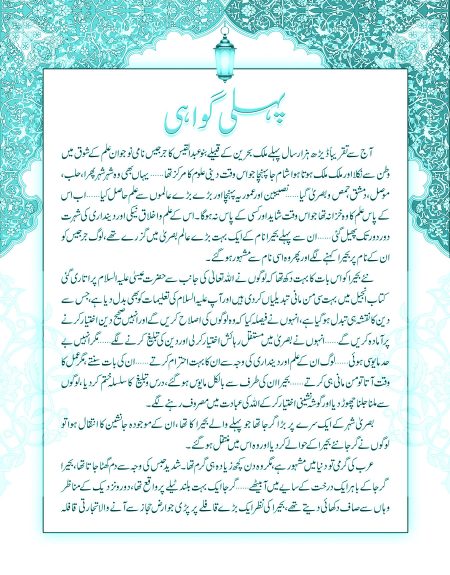 پہلی گواہی
آج سے تقریباً ڈیڑھ ہزار سال پہلے ملک بحرین کے قبیلے بنو عبدالقیس کا جرجیس نامی نوجوان علم کے شوق میں
وطن سے نکلا اور ملک ملک ہوتا ہوا شام جا پہنچا جو اس وقت دینی علوم کا مرکز تھا...... یہاں بھی وہ شہر شہر پھرا، حلب،
موصل، دمشق، حمص و بصریٰ گیا...... نصیبین اور عموریہ پہنچا اور بڑے بڑے عالموں سے علم حاصل کیا...... اب اس
کے پاس علم کا وہ خزانہ تھا جو اس وقت شاید اور کسی کے پاس نہ ہوگا۔ اس کے علم و اخلاق نیکی اور دینداری کی شہرت
دور دور تک پھیل گئی...... ان سے پہلے بحیرا نام کے ایک بہت بڑے عالم بصریٰ میں گزرے تھے، لوگ جرجیس کو
ان کے نام پر بحیرا کہنے لگے اور پھر وہ اسی نام سے مشہور ہو گئے۔
نئے بحیرا کو اس بات کا بہت دکھ تھا کہ لوگوں نے اللہ تعالیٰ کی جانب سے حضرت عیسیٰ علیہ السلام پر اتاری گئی
کتاب انجیل میں بہت سی من مانی تبدیلیاں کر دی ہیں اور آپ علیہ السلام کی تعلیمات کو بھی بدل دیا ہے، جس سے
دین کا نقشہ ہی تبدیل ہو گیا ہے، انہوں نے فیصلہ کیا کہ وہ لوگوں کی اصلاح کریں گے اور انہیں صحیح دین اختیار کرنے
پر آمادہ کریں گے...... انہوں نے بصریٰ میں مستقل رہائش اختیار کر لی اور دین کی تبلیغ کرنے لگے...... مگر انہیں بے
حد مایوسی ہوئی...... لوگ ان کے علم اور دینداری کی وجہ سے ان کا بہت احترام کرتے...... ان کی بات سنتے مگر عمل کا
وقت آتا تو من مانی ہی کرتے...... بحیرا ان کی طرف سے بالکل مایوس ہو گئے، درس و تبلیغ کا سلسلہ ختم کر دیا، لوگوں
سے ملنا جلنا چھوڑ دیا اور گوشہ نشینی اختیار کر کے اللہ کی عبادت میں مصروف رہنے لگے۔
بصریٰ شہر کے ایک سرے پر بڑا گرجا تھا جو پہلے والے بحیرا کا تھا، ان کے موجودہ جانشین کا انتقال ہوا تو
لوگوں نے گرجا نئے بحیرا کے حوالے کر دیا اور وہ اس میں منتقل ہو گئے۔
عرب کی گرمی تو دنیا میں مشہور ہے، مگر وہ دن کچھ زیادہ ہی گرم تھا۔ شدید حبس کی وجہ سے دم گھٹا جاتا تھا، بحیرا
گرجا کے باہر ایک درخت کے سایے میں آ بیٹھے...... گرجا ایک بہت بلند ٹیلے پر واقع تھا، دور و نزدیک کے مناظر
وہاں سے صاف دکھائی دیتے تھے، بحیرا کی نظر ایک بڑے قافلے پر پڑی جو ارض حجاز سے آنے والا تجارتی قافلہ